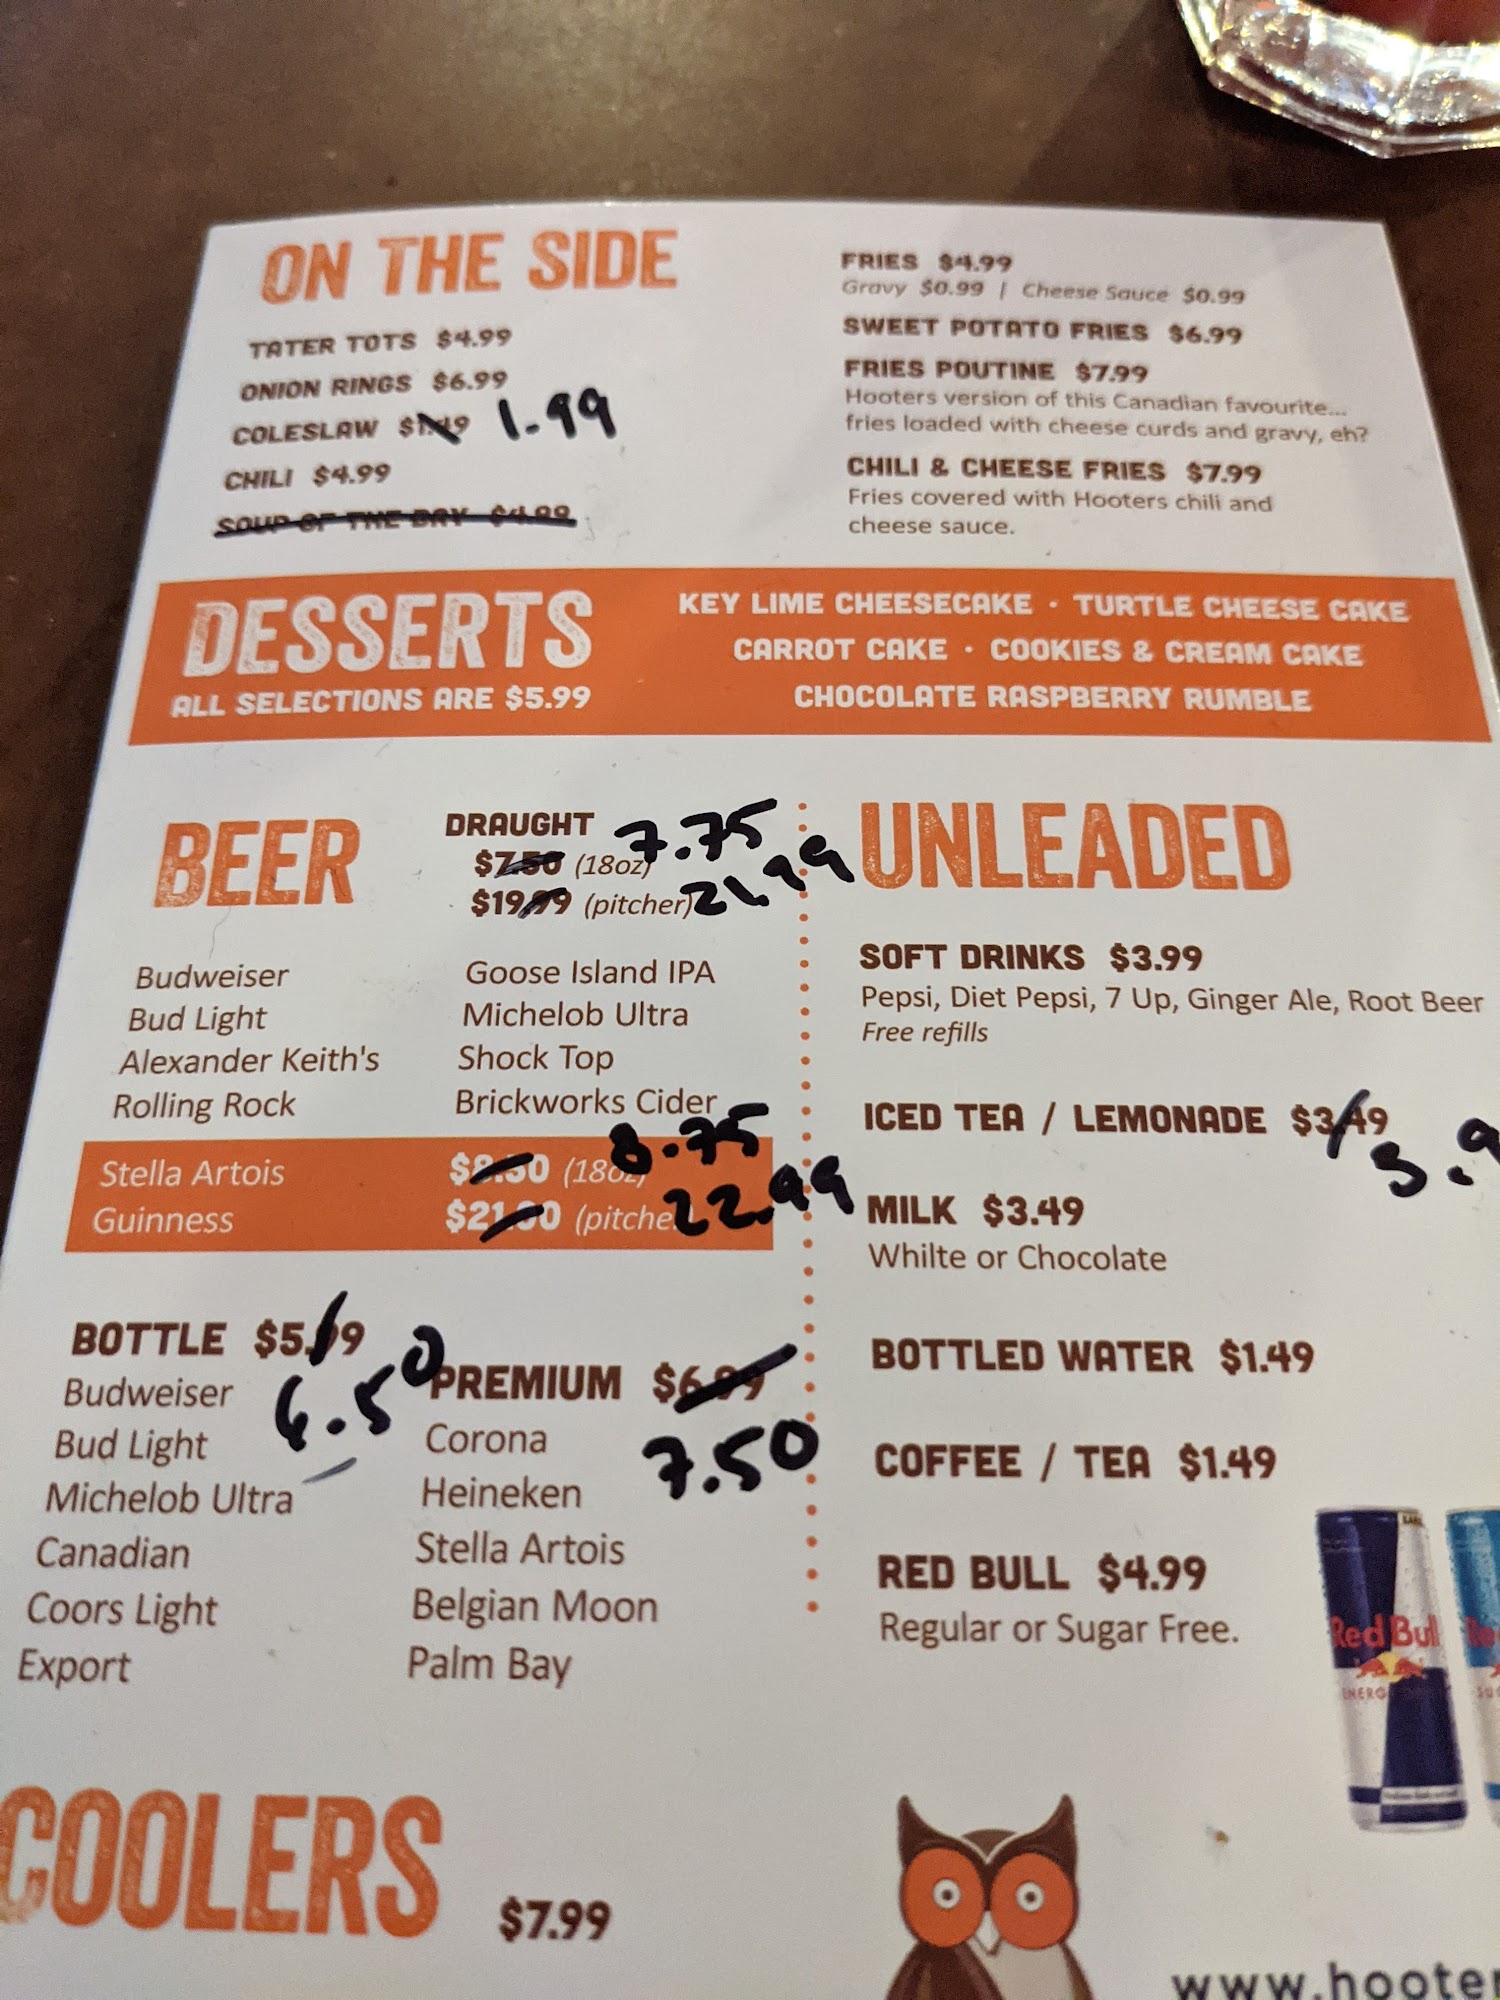 ON THE SIDE
TATER TOTS $4.99
ONION RINGS $6.99
COLESLAW $1.49 1.99
CHILI $4.99
SOUP OF THE DAY $4.99
FRIES $4.99
Gravy $0.99 | Cheese Sauce $0.99
SWEET POTATO FRIES $6.99
FRIES POUTINE $7.99
Hooters version of this Canadian favourite...
fries loaded with cheese curds and gravy, eh?
CHILI & CHEESE FRIES $7.99
Fries covered with Hooters chili and
cheese sauce.
DESSERTS
ALL SELECTIONS ARE $5.99
KEY LIME CHEESECAKE • TURTLE CHEESE CAKE
CARROT CAKE • COOKIES & CREAM CAKE
CHOCOLATE RASPBERRY RUMBLE
BEER
DRAUGHT
$7.50 (18oz) 7.75
$19.99 (pitcher) 21.99
Budweiser
Bud Light
Alexander Keith's
Rolling Rock
Goose Island IPA
Michelob Ultra
Shock Top
Brickworks Cider
Stella Artois
Guinness
$8.50 (18oz) 8.75
$21.00 (pitcher) 22.99
BOTTLE $5.99
6.50
Budweiser
Bud Light
Michelob Ultra
Canadian
Coors Light
Export
PREMIUM $6.99
7.50
Corona
Heineken
Stella Artois
Belgian Moon
Palm Bay
UNLEADED
SOFT DRINKS $3.99
Pepsi, Diet Pepsi, 7 Up, Ginger Ale, Root Beer
Free refills
ICED TEA / LEMONADE $3.49
3.9
MILK $3.49
Whilte or Chocolate
BOTTLED WATER $1.49
COFFEE / TEA $1.49
RED BULL $4.99
Regular or Sugar Free.
Red Bull
COOLERS
$7.99
www.hooter